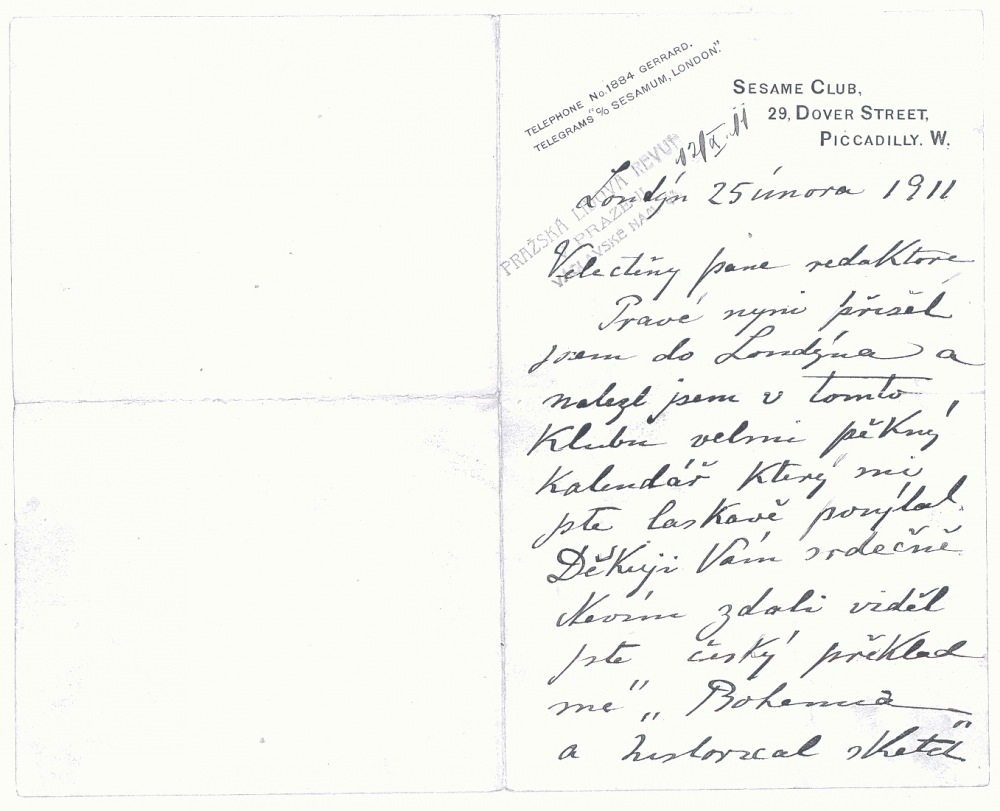 TELEPHONE No. 1884 GERRARD.
TELEGRAMS "c/o SESAMUM, LONDON."
SESAME CLUB,
29, DOVER STREET,
PICCADILLY. W.
PRAŽSKÁ LIDOVÁ REVUE
PRAZE-II
VÁCLAVSKÉ NÁM.
12/X. 11
Londýn 25 února 1911
Velectěny pane redaktore
Pravé nyni přišel
jsem do Londýna a
nalezl jsem v tomto
Klubu velmi pěkný
Kalendář Který mi
jste laskavě posýlal.
Děkuji Vám srdečně
Nevim zdali viděl
jste český překlad
mé „Bohemia
a historical sketch"